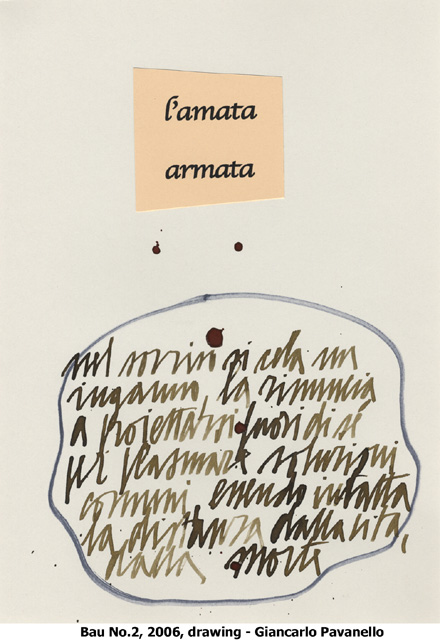 l'amata
armata
nel sorriso si cela un
inganno, la rinuncia
a proiettarsi fuori di sé
per plasmare soluzioni
comuni essendo intatta
la distanza dalla vita,
dalla morte
Bau No.2, 2006, drawing - Giancarlo Pavanello